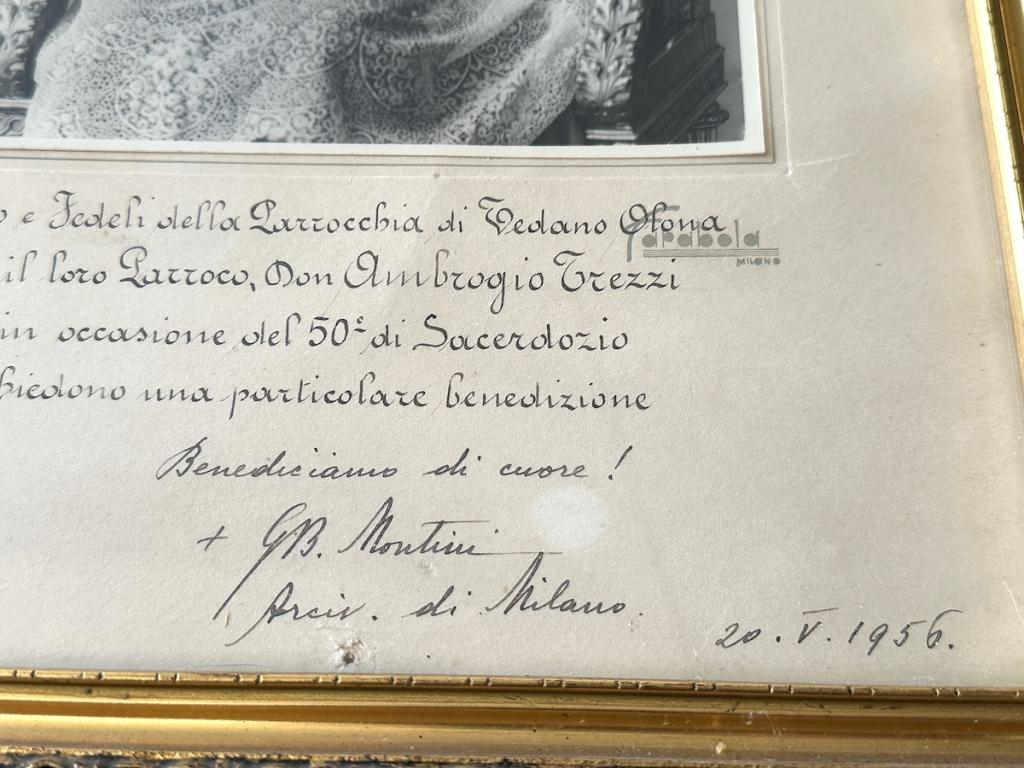 e Fedeli della Parrocchia di Vedano Olona
Farabola
MILANO
il loro Parroco, Don Ambrogio Trezzi
in occasione del 50º di Sacerdozio
hiedono una particolare benedizione
Benediciamo di cuore !
+ GB. Montini
Arciv. di Milano.
20. V. 1956.